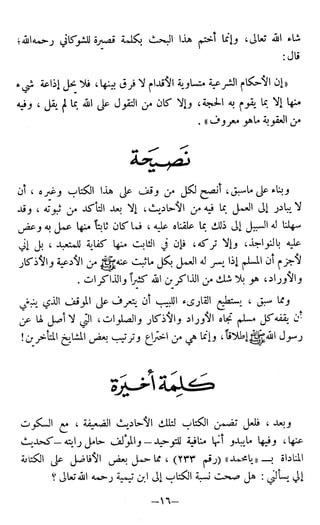 شاء الله تعالى، وإنما أختم هذا البحث بكلمة قصيرة للشوكاني رحمه الله؛
قال:
«إن الأحكام الشرعية متساوية الأقدام لا فرق بينها، فلا يحل إذاعة شيء
منها إلا بما يقوم به الحجة، وإلا كان من التقول على الله بما لم يقل، وفيه
من العقوبة ماهو معروف».
نصيحة
وبناء على ماسبق، أنصح لكل من وقف على هذا الكتاب وغيره، أن
لا يبادر إلى العمل بما فيه من الأحاديث، إلا بعد التأكد من ثبوته، وقد
سهلنا له السبيل إلى ذلك بما علقناه عليه، فما كان ثابتاً منها عمل به وعض
عليه بالنواجذ، وإلا تركه، فإن في الثابت منها كفاية للمتعبد، بل إني
لأجزم أن المسلم إذا يسر له العمل بكل ماثبت عنه ﷺ من الأدعية والأذكار
والأوراد، هو بلا شك من الذاكرين الله كثيراً والذاكرات.
ومما سبق، يستطيع القارىء اللبيب أن يتعرف على الموقف الذي ينبغي
أن يقفه كل مسلم تجاه الأوراد والأذكار والصلوات، التي لا أصل لها عن
رسول الله ﷺ إطلاقاً، وإنما هي من اختراع وترتيب بعض المشايخ المتأخرين!
كلمة أخيرة
وبعد، فلعل تضمن الكتاب لتلك الأحاديث الضعيفة، مع السكوت
عنها، وفيها مايبدو أنها منافية للتوحيد – والمؤلف حامل رايته – كحديث
المناداة بـ «يامحمد» (رقم ٢٣٣)، مما حمل بعض الأفاضل على الكتابة
إلي يسألني: هل صحت نسبة الكتاب إلى ابن تيمية رحمه الله تعالى؟
–١٦–